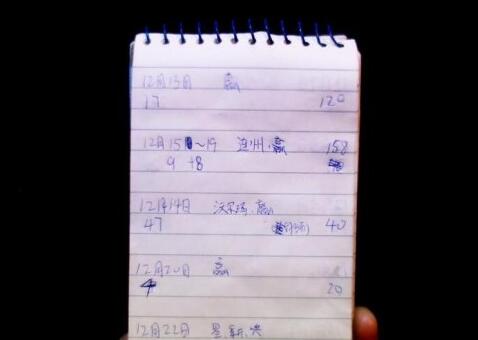 12月13日 赢
17 120
12月15~19 连州 赢 158
9 +8
12月14日 沃尔玛 赢
47 40
12月20日 赢
4 20
12月22日